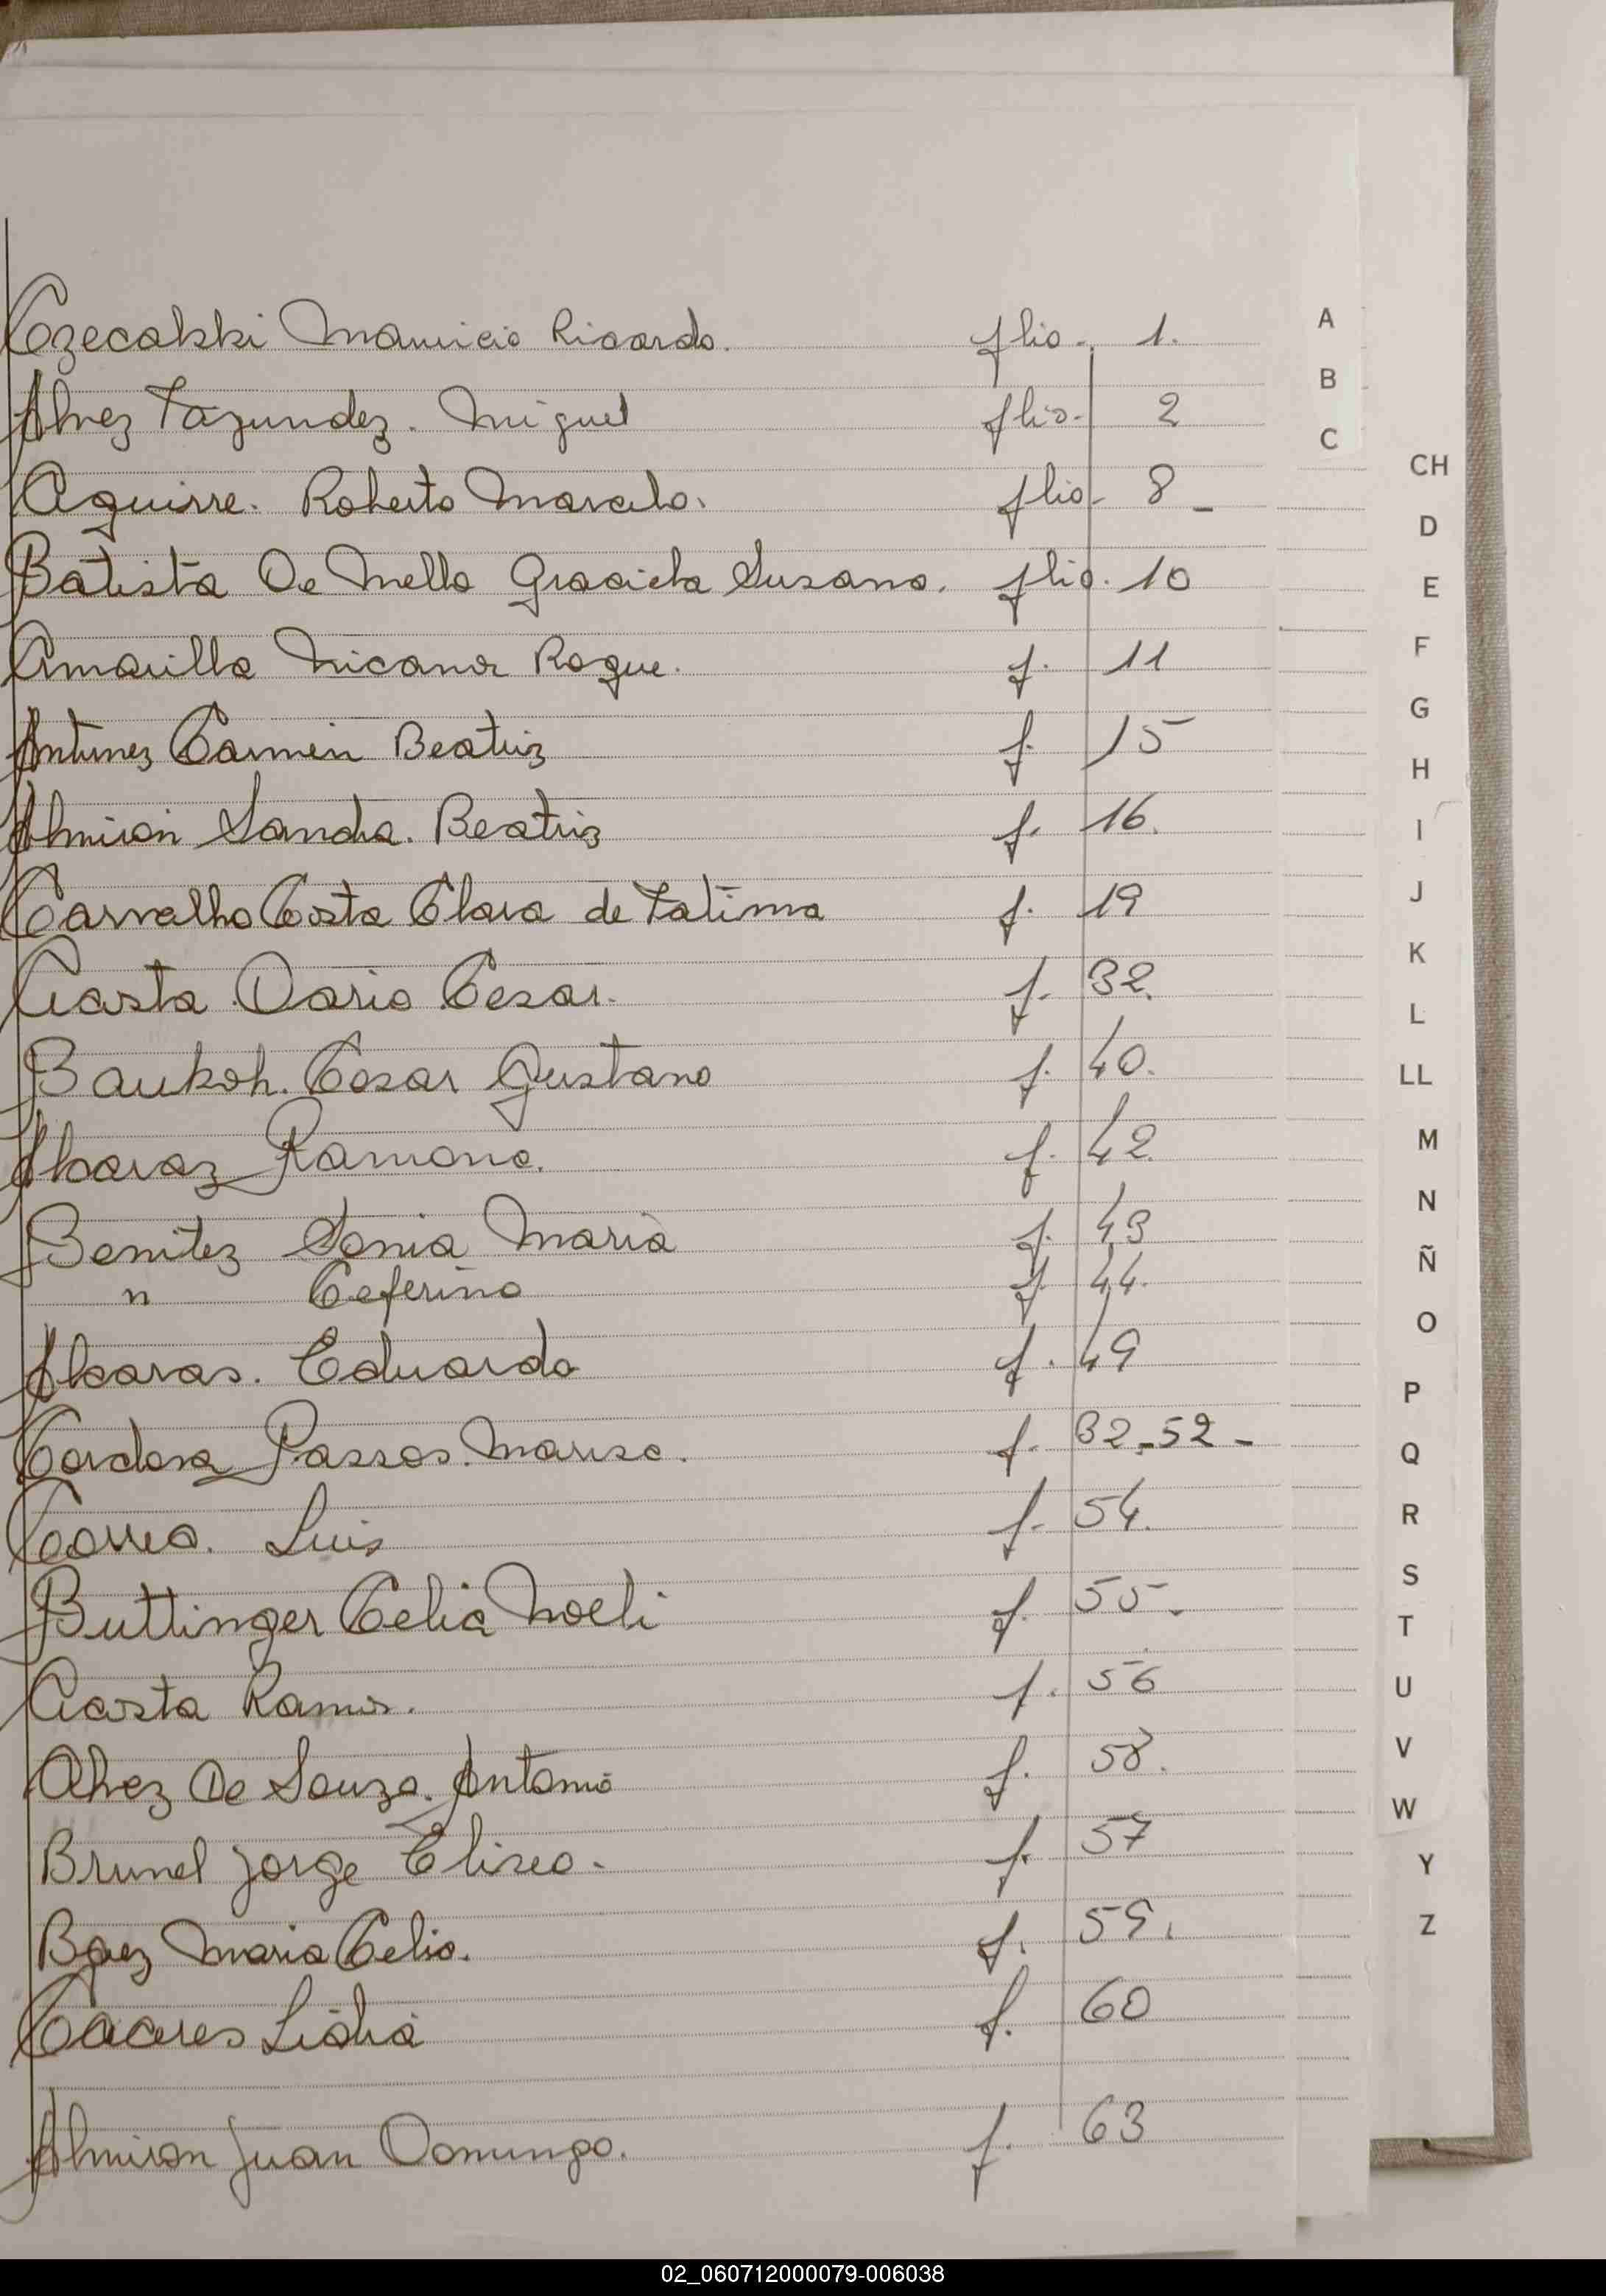 Czecalski Mauricio Ricardo. flio. 1.
Alvez Fagundez. Miguel flio. 2
Aguirre. Roberto Marcelo. flio. 8 -
Batista De Mello Graciela Susana. flio. 10
Amarilla Nicanor Roque. f. 11
Antunez Carmen Beatriz f. 15
Almiron Sandra. Beatriz f. 16.
Carvalho Costa Clara de Fatima f. 19
Acosta Dario Cesar. f. 32.
Cesar Gustavo f. 40.
Alcaraz Ramona. f. 42.
Benitez Sonia Maria f. 43
" Ceferino f. 44.
Alcaras. Eduardo f. 49
Cardoza Passos. Marisa. f. 32-52-
Correa. Luis f. 54.
Buttinger Celia Noeli f. 55-.
Acosta Ramon. f. 56
Alvez De Souza. Antonio f. 58.
Brunel Jorge Eliseo. f. 57
Baez Maria Celia. f. 59.
Caceres Lidia f. 60
Almiron Juan Domingo. f. 63
A
B
C
CH
D
E
F
G
H
I
J
K
L
LL
M
N
Ñ
O
P
Q
R
S
T
U
V
W
Y
Z
02_060712000079-006038